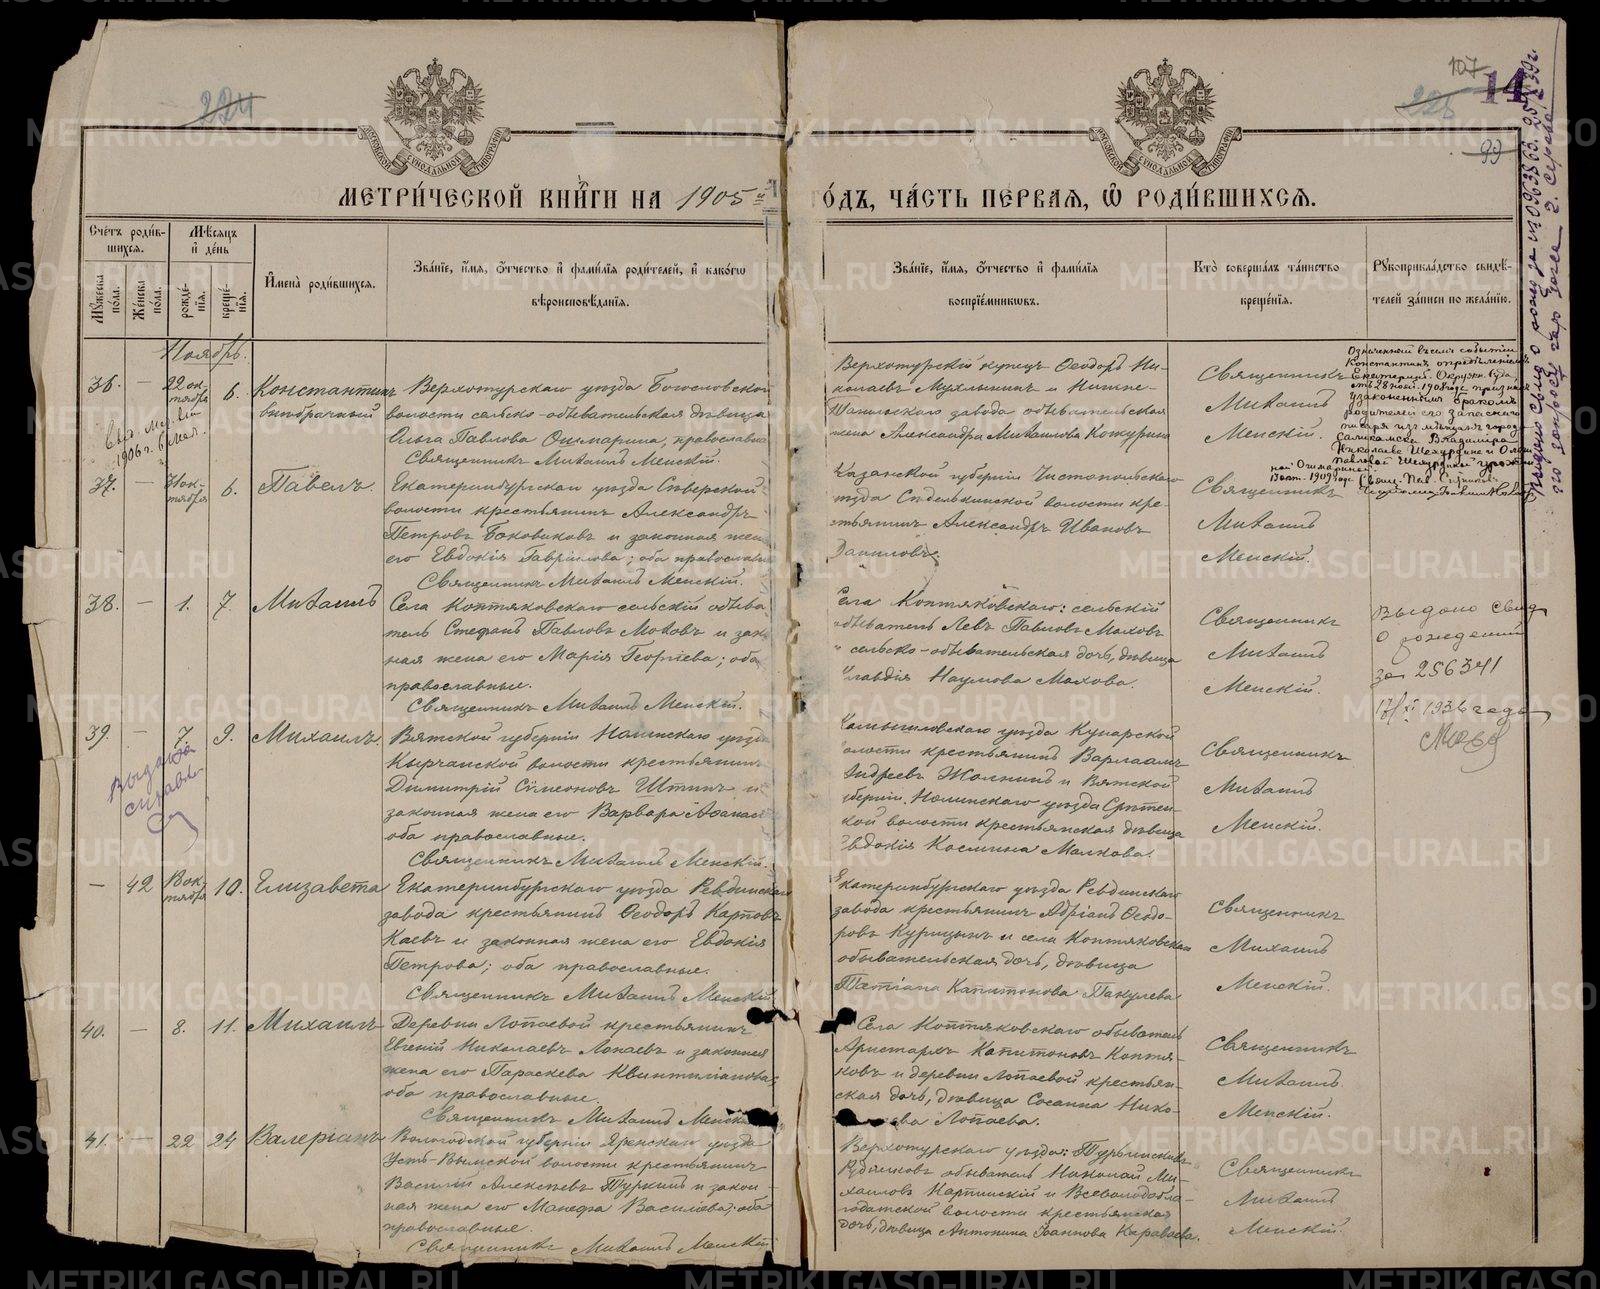 224
107
228
14
99
МЕТРИ́ЧЕСКОЙ КНИ́ГИ НА 1905й
ГО́ДЪ, ЧА́СТЬ ПЕРВАЯ, Ѿ РОДИ́ВШИХСЯ.
Сче́тъ роди́вшихся.
Мѣсяцъ и де́нь
Мужеска пола.
Женска пола.
рожде́нія.
креще́нія.
Имена̀ роди́вшихся.
Зва́ніе, и́мя, о́тчество и фами́лія роди́телей, и како́гѡ
вѣроисповѣ́данія.
Зва́ніе, и́мя, о́тчество и фами́лія
воспріе́мниковъ.
Кто̀ соверша́лъ та́инство
креще́нія.
Рукоприкла́дство свидѣ́-
телей за́писи по жела́нію.
Ноябрь.
36. — 22 ок-
тября 6.
Константинъ
внѣбрачный
Верхотурскаго уѣзда Богословской
волости сельско-обывательская дѣвица
Ольга Павлова Ошмарина, православная
Священникъ Михаилъ Менскій.
Верхотурскій купецъ Ѳеодоръ Ни-
колаевъ Мухлынинъ и Нижне-
завода обывательская
жена Александра Михаилова Кожурина
Священникъ
Михаилъ
Менскій.
1906 г. 6 мая.
Означенный въ семъ событіи
Константинъ опредѣленіемъ
Екатеринб. Окружн. Суда,
отъ 28 1908 года признанъ
узаконеннымъ бракомъ
родителей его запаснаго
писаря изъ мѣщанъ города
Соликамска Владиміра
Николаева Шехурдина и Ольги
Павловой
Ошмариной.
1909 года
37. — 31 ок-
тября 6.
Павелъ.
Екатеринбургскаго уѣзда Сѣверской
волости крестьянинъ Александръ
Петровъ Боковиковъ и законная жена
его Евдокія Гавріилова; оба православные
Священникъ Михаилъ Менскій.
Казанской губерніи Чистопольскаго
уѣзда волости кре-
стьянинъ Александръ Ивановъ
Даниловъ.
Священникъ
Михаилъ
Менскій.
38. — 1. 7.
Михаилъ
Села Коптяковскаго сельскій обыва
тель Стефанъ Павловъ Моховъ и закон
ная жена его Марія Георгіева; оба
православные.
Священникъ Михаилъ Менскій.
Села Коптяковскаго: сельскій
обыватель Левъ Павловъ Моховъ
и сельско-обывательская дочь, дѣвица
Клавдія Наумова Мохова.
Священникъ
Михаилъ
Менскій.
Выдано свид
о рождении
за 256341
1936 года
39. — 7. 9.
Выдана
справка
Михаилъ.
Вятской губерніи Нолинскаго уѣзда
Кырчанской волости крестьянинъ
Димитрій Сѵмеоновъ Штинъ и
законная жена его Варвара Аѳанас
оба православные.
Священникъ Михаилъ Менскій.
Камышловскаго уѣзда Кунарской
волости крестьянинъ Варлаамъ
Андреевъ Жолнинъ и Вятской
губерніи, Нолинскаго уѣзда Срѣтен-
ской волости крестьянская дѣвица
Евдокія Космина Малкова.
Священникъ
Михаилъ
Менскій.
— 42 ок-
тября 10.
Елизавета
Екатеринбургскаго уѣзда Ревдинскаго
завода крестьянинъ Ѳеодоръ Карповъ
Каевъ и законная жена его Евдокія
Петрова; оба православные.
Священникъ Михаилъ Менскій
Екатеринбургскаго уѣзда Ревдинскаго
завода крестьянинъ Адріанъ Ѳеодо-
ровъ Курицынъ и села Коптяковскаго
обывательская дочь, дѣвица
Татіана Капитонова Пакулева
Священникъ
Михаилъ
Менскій.
40. — 8. 11.
Михаилъ
Деревни Лопаевой крестьянинъ
Евгеній Николаевъ Лопаевъ и законная
жена его Параскева Квинтиліанова;
оба православные.
Священникъ Михаилъ Менскій
Села Коптяковскаго обыватель
Аристархъ Капитоновъ Коптя-
ковъ и деревни Лопаевой крестьян-
ская дочь, дѣвица Сосанна Нико-
лаева Лопаева.
Священникъ
Михаилъ
Менскій.
41. — 22 24
Валеріанъ
Вологодской губерніи Яренскаго уѣзда
Усть-Вымской волости крестьянинъ
Василій Алексѣевъ Туркинъ и закон-
ная жена его Манефа Василіева; оба
православные.
Священникъ Михаилъ Менскій
Верхотурскаго уѣзда: Турьинскихъ
Рудниковъ обыватель Николай Ми-
хаиловъ Карпинскій и Всеволодобла-
годатской волости крестьянская
дочь, дѣвица Антонина Іоаннова Караваева.
Священникъ
Михаилъ
Менскій.
METRIKI.GASO-URAL.RU